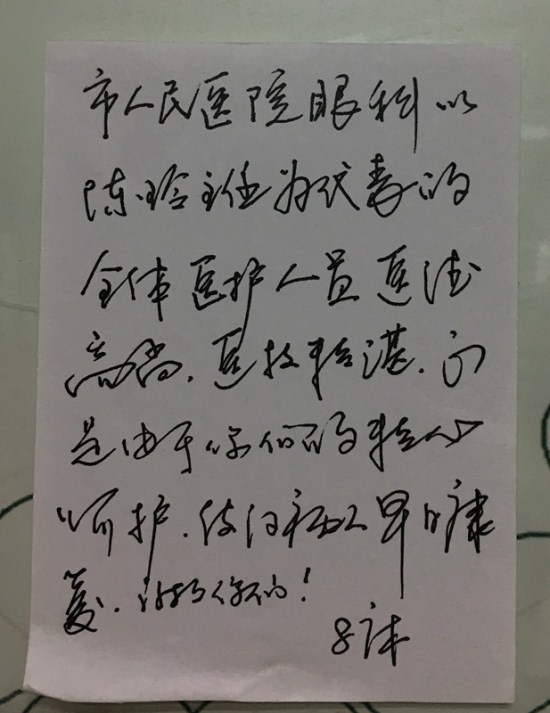 市人民医院眼科以
陈玲主任为代表的
全体医护人员医德
高尚，医技精湛，正
是由于你们的精心
呵护，使妇亲以早日康
复，谢谢你们！
8床